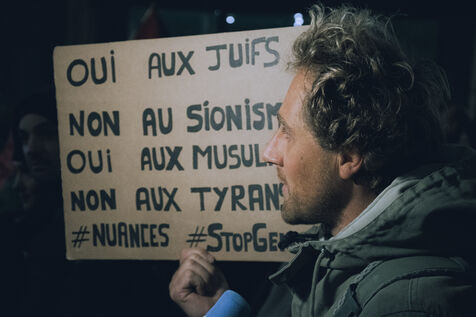 OUI AUX JUIFS
NON AU SIONISM
OUI AUX MUSUL
NON AUX TYRAN
#NUANCES #STOPGE